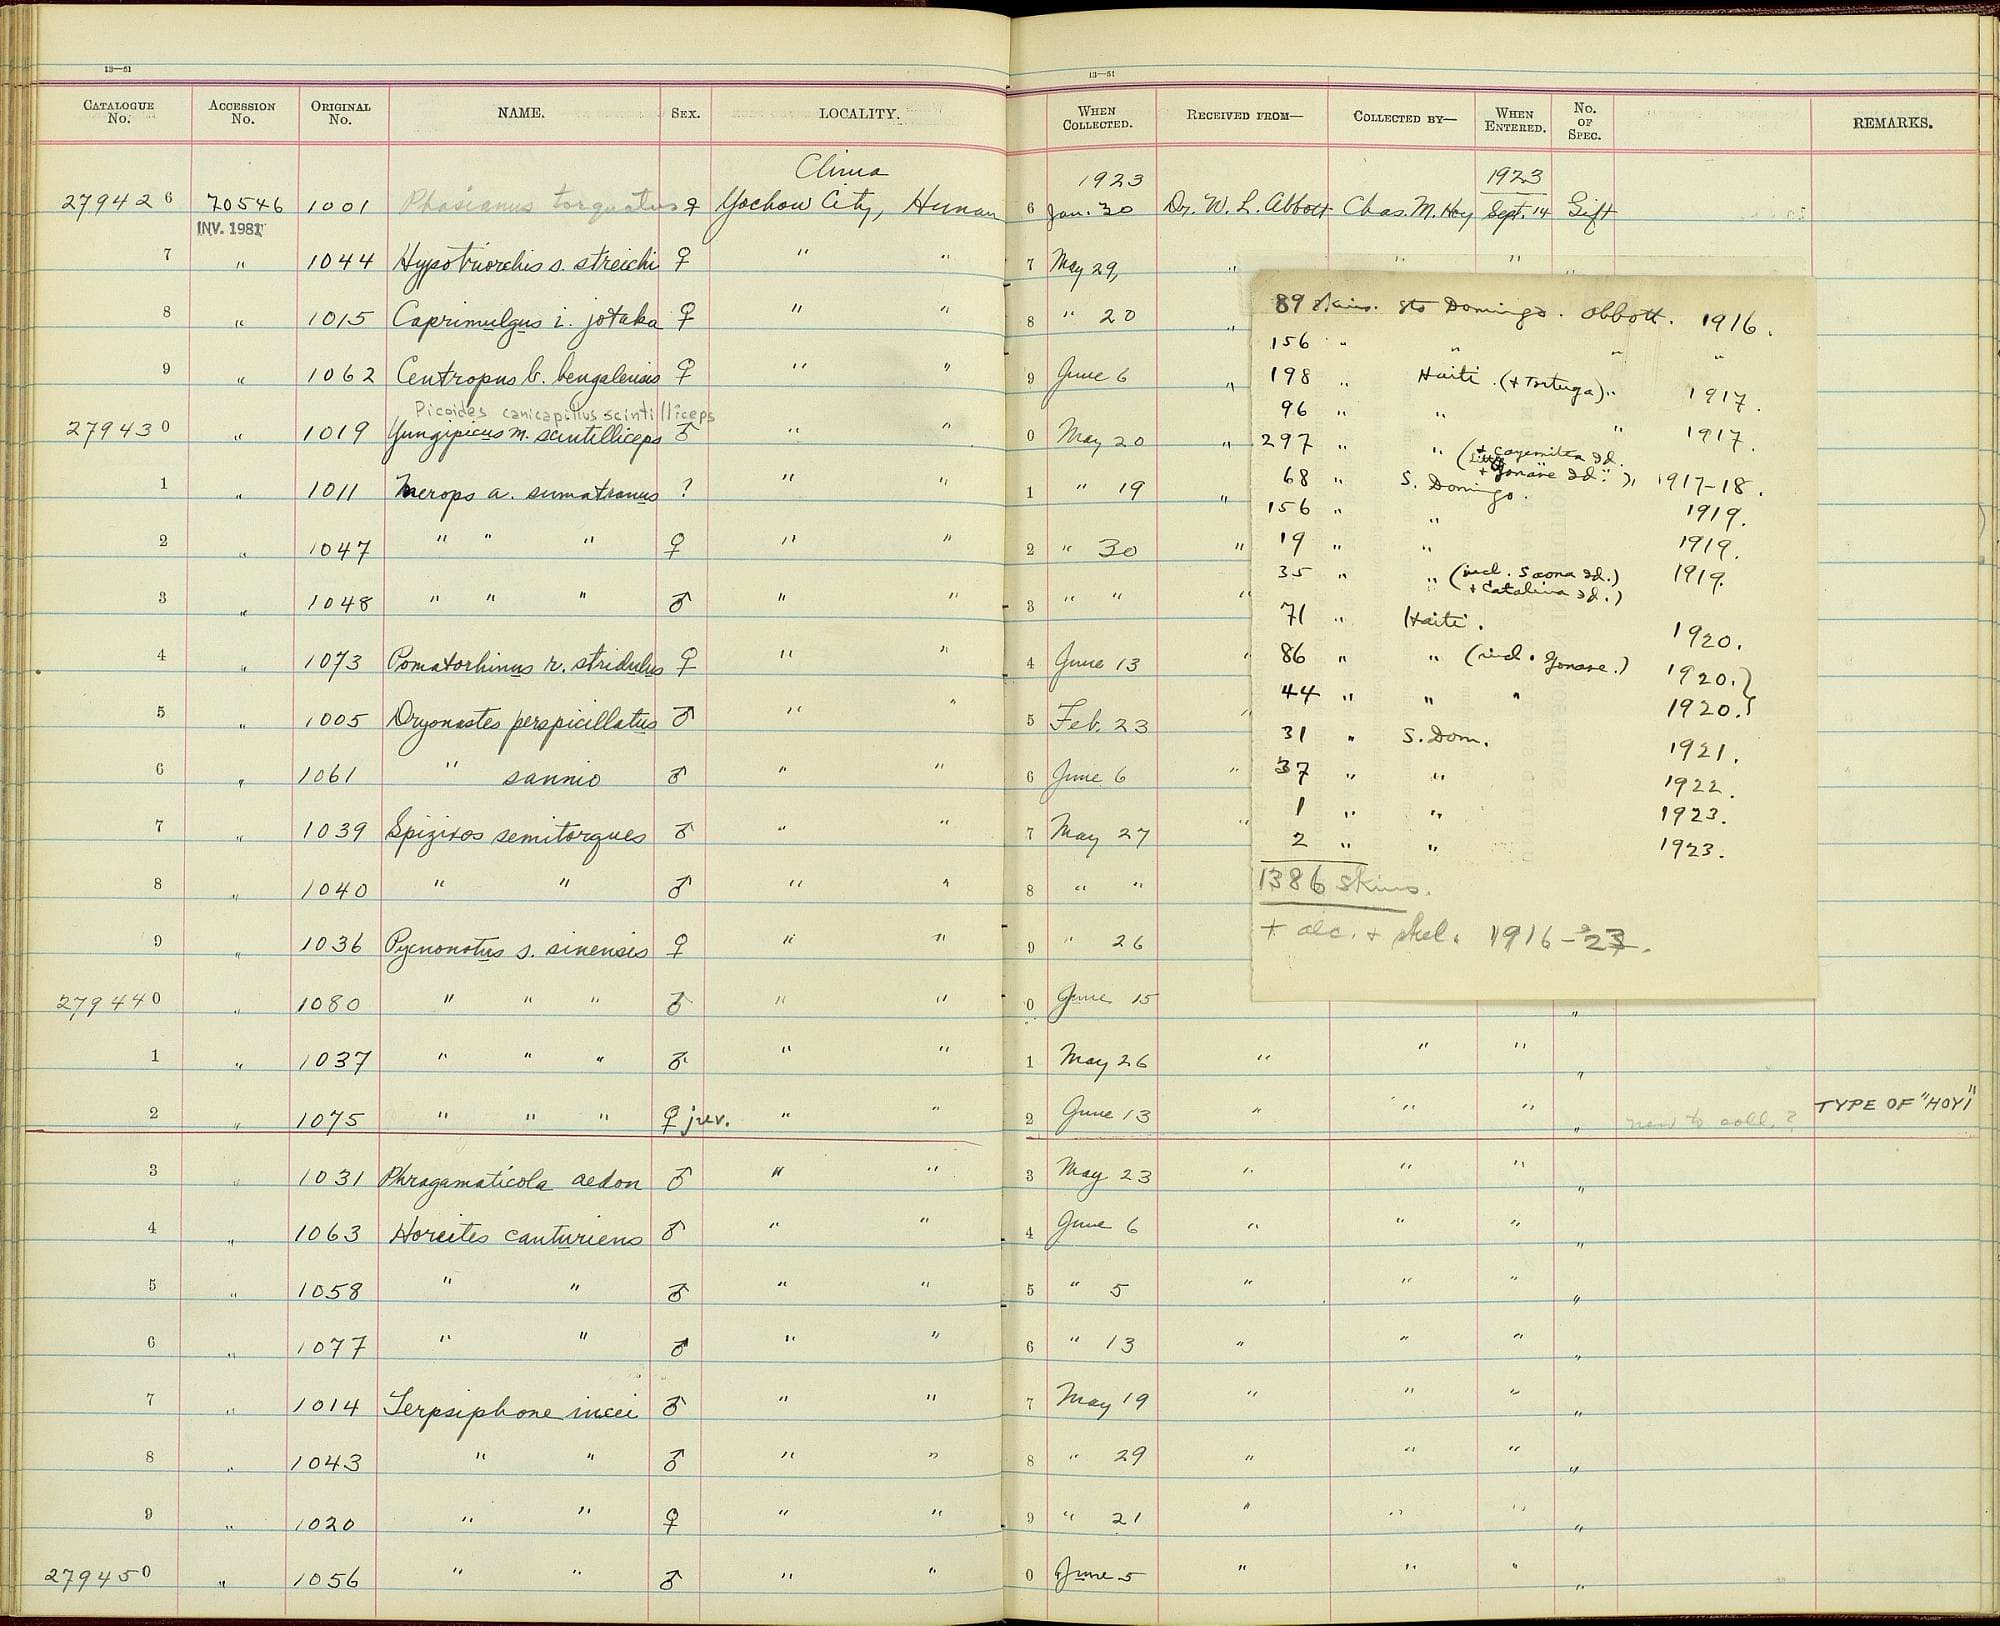 13—51
13—51
CATALOGUE No. ACCESSION No. ORIGINAL No. NAME. SEX. LOCALITY. WHEN COLLECTED. RECEIVED FROM— COLLECTED BY— WHEN ENTERED. No. OF SPEC. REMARKS.
China 1923 1923
279426 70546 1001 Phasianus torquatus ♀ Yochow City, Hunan 6 Jan. 30 Dr. W. L. Abbott Chas. M. Hoy Sept. 14 Gift
INV. 1981
7 " 1044 Hypotriorchis s. streichi ♀ " " 7 May 29, " " " "
8 " 1015 Caprimulgus i. jotaka ♀ " " 8 " 20 "
9 " 1062 Centropus b. bengalensis ♀ " " 9 June 6 "
Picoides canicapillus scintilliceps
279430 " 1019 Yungipicus m. scintilliceps ♂ " " 0 May 20 "
1 " 1011 Merops a. sumatranus ? " " 1 " 19 "
2 " 1047 " " " ♀ " " 2 " 30 "
3 " 1048 " " " ♂ " " 3 " " "
4 " 1073 Pomatorhinus r. stridulus ♀ " " 4 June 13 "
5 " 1005 Dryonastes perspicillatus ♂ " " 5 Feb. 23 "
6 " 1061 " sannio ♂ " " 6 June 6 "
7 " 1039 Spizixos semitorques ♂ " " 7 May 27 "
8 " 1040 " " ♂ " " 8 " "
9 " 1036 Pycnonotus s. sinensis ♀ " " 9 " 26
279440 " 1080 " " " ♂ " " 0 June 15 "
1 " 1037 " " " ♂ " " 1 May 26 " " " "
2 " 1075 " " " ♀ juv. " " 2 June 13 " " " " new to coll.? TYPE OF "HOYI"
3 " 1031 Phragamaticola aedon ♂ " " 3 May 23 " " " "
4 " 1063 Horeites canturiens ♂ " " 4 June 6 " " " "
5 " 1058 " " ♂ " " 5 " 5 " " " "
6 " 1077 " " ♂ " " 6 " 13 " " " "
7 " 1014 Terpsiphone incei ♂ " " 7 May 19 " " " "
8 " 1043 " " ♂ " " 8 " 29 " " " "
9 " 1020 " " ♀ " " 9 " 21 " " " "
279450 " 1056 " " ♂ " " 0 June 5 " " " "
89 skins. Sto Domingo. Abbott. 1916.
156 " " " "
198 " Haiti. (+ Tortuga) " 1917.
96 " " " 1917.
297 " " (+ Cayemites Id.
+ Little Gonave Id. "), 1917-18.
68 " S. Domingo. 1919.
156 " " 1919.
19 " " 1919.
35 " " (incl. Saona Id.)
+ Catalina Id.)
71 " Haiti. 1920.
86 " " (incl. Gonave.) 1920.}
44 " " " 1920.}
31 " S. Dom. 1921.
37 " " 1922.
1 " " 1923.
2 " " 1923.
1386 skins.
+ alc. + skel. 1916-23.